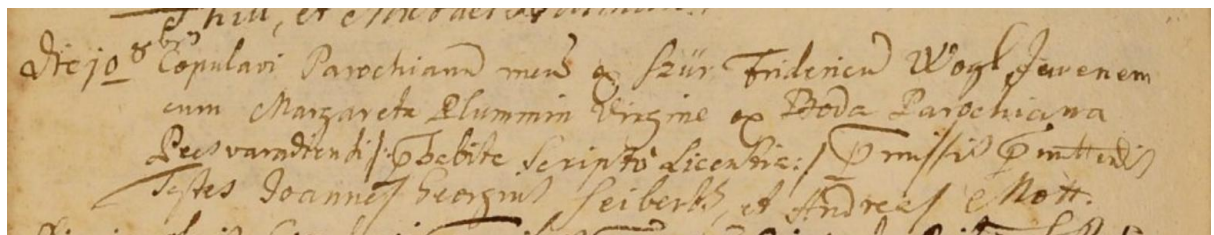 Thill, et
Die 10 8bris Copulavi Parochianū meū ex Szür Fridericū Wogl Juvenem
cum Margareta Plummin Virgine ex Boda Parochiana
Pecsvaradiensi /: p̄habita scripto Licentia: / p̄missis p̄mittendis
Testes Joannes Georgius Seiberth, et Andreas Mott.